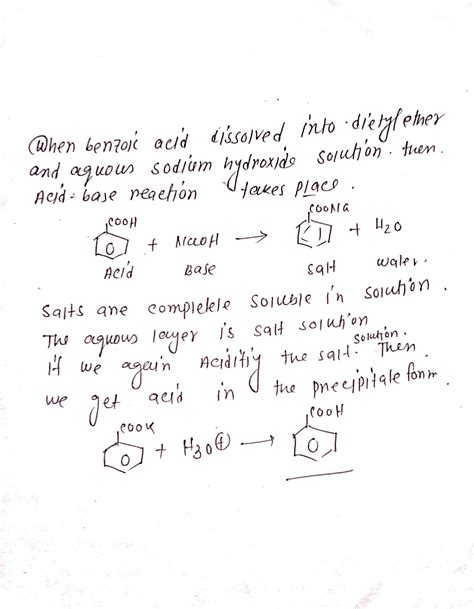 When benzoic acid dissolved into dietyl ether
and aquous sodium hydroxide solution. then
Acid-base reaction takes place.
COOH + NaOH → COONa + H2O
Acid Base salt water.
Salts are complete soluble in solution.
The aquous layer is salt solution
If we again Acidify the salt solution. Then
we get acid in the precipitate form.
COO + H3O⊕ → COOH